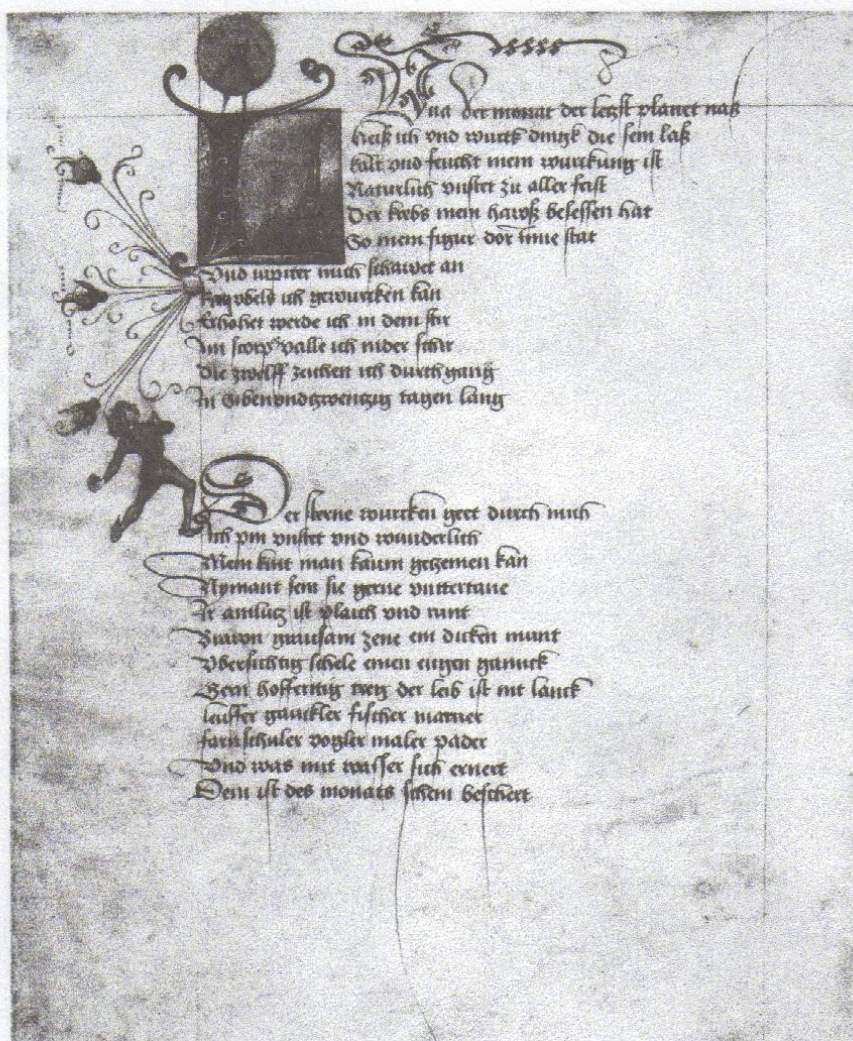 Luna der monat der letzst planet naß
Heiß ich vnd wurck dingk die sein laß
kalt vnd feucht mein wurckung ist
Naturlich vnstet zu aller frist
Der krebs mein hawß besessen hat
So mein figur dor inne stat
Vnd iupiter mich schawet an
kein vbels ich gewurcken kan
Erhohet werde ich in dem stir
Im scorp valle ich nider schir
Die zwelff zeichen ich durchgang
In Sibenvndzwentzig tagen lang
Der sterne wurcken geet durch mich
Ich pin vnstet vnd wunderlich
Mein kint man kaum gezemen kan
Nymant sein sie gerne vnttertane
Ir antlutz ist plaich vnd runt
Brawn grausam zene ein dicken munt
Vbersichtig schele einen engen ganck
Gern hoffertig treg der leib ist nit lanck
leuffer gauckler fischer marner
farnschuler vogler maler pader
Vnd was mit wasser sich ernert
Dem ist des monats schein beschert